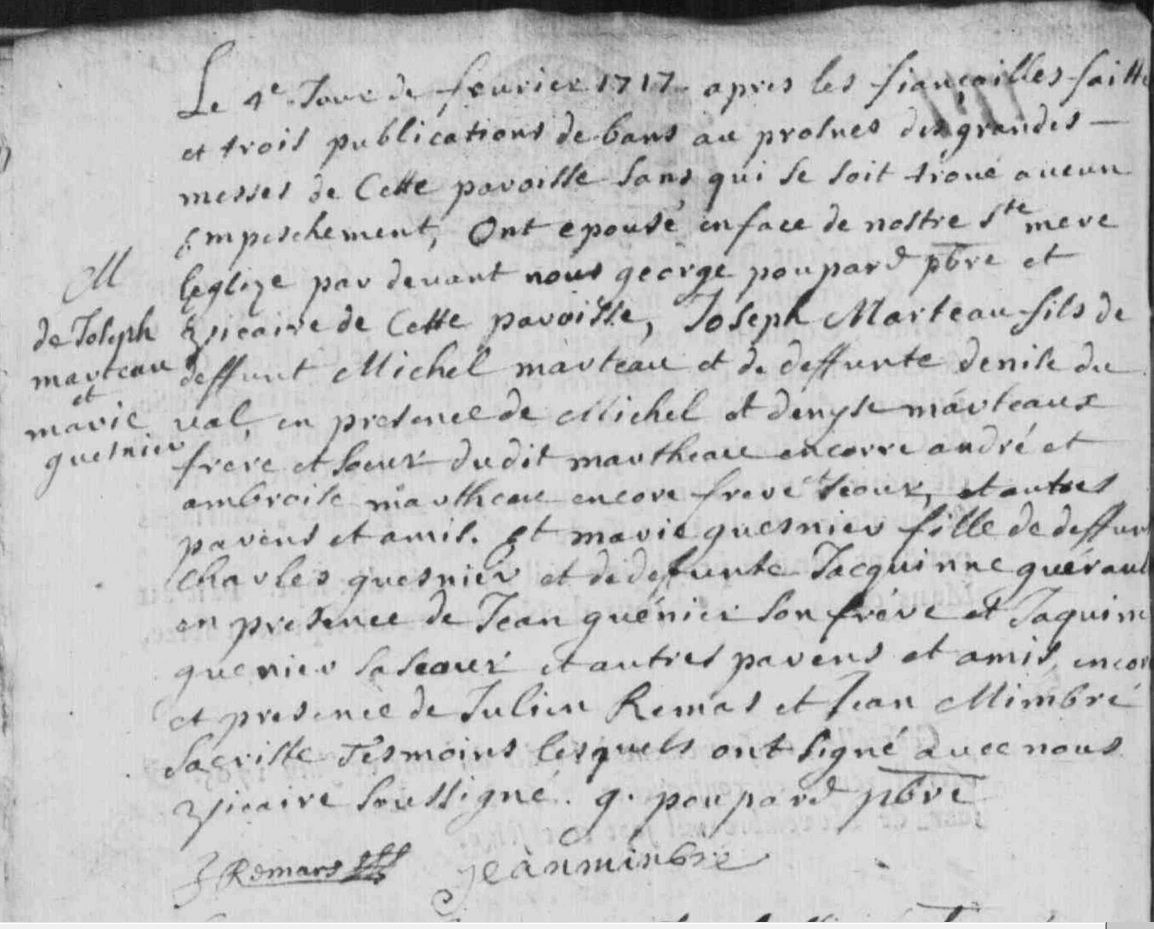 Le 4e Jour de feurier 1717 apres les fiançailles faitte
et trois publications de bans au prosnes des grandes
messes de Cette paroisse sans qui se soit trouué aucun
Empeschement, Ont epousé en face de nostre Ste mere
leglize par devant nous george poupard pbre et
vicaire de Cette paroisse, Joseph Marteau fils de
deffunt Michel marteau et de deffunte denise du
val, en presence de Michel et denyse marteaux
frere et soeur dudit mautheau encorre andré et
ambroise mautheau encore frere et seour, et autres
parens et amis. Et marie guesnier fille de deffun
Charles quesnier et de defunte Jacquinne guérault
en presence de Jean guénier son frére et Jaquine
guenier sa seour et autres parens et amis, encor
et presence de Julien Remas et Jean Mimbré
Sacriste Tesmoins lesquels ont signé avec nous
vicaire soussigné. g. poupard pbre
M
de Joseph
marteau
et
marie
guesnier
J Remars jeanminbré